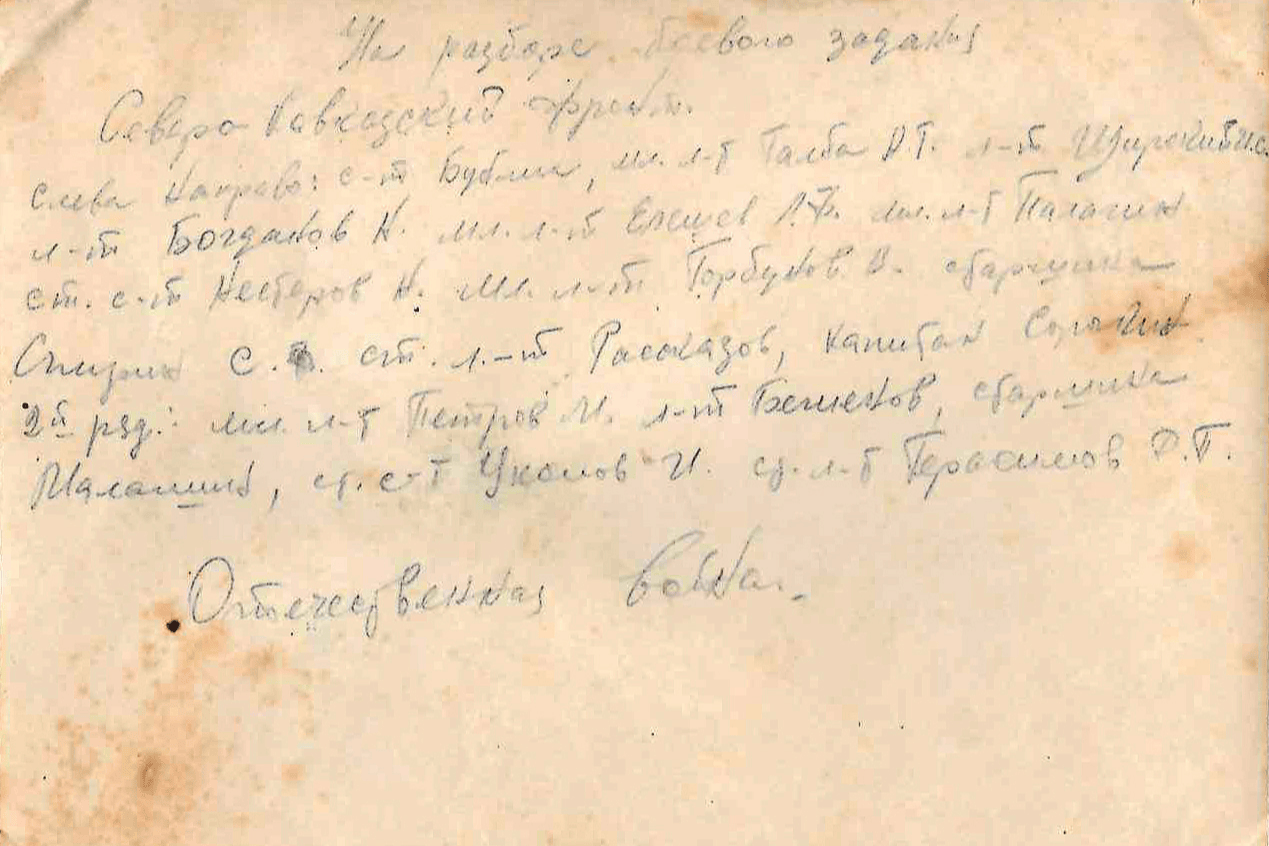 На разборе боевого задания
Северо Кавказский фронт.
слева направо: с-т Бублик, мл. л-т Галба Р.Т. л-т
л-т Богданов Н. мл. л-т Елешев мл. л-т Палагин
ст. с-т Нестеров Н. мл. л-т Горбунов В. старшина
Спирин С. ст. л-т Рассказов, капитан Сорокин
2й ряд: мл. л-т Петров И. л-т Беженов, старшина
Малашин, ст. с-т Уколов И. ст. л-т Герасимов Р.П.
Отечественная война.